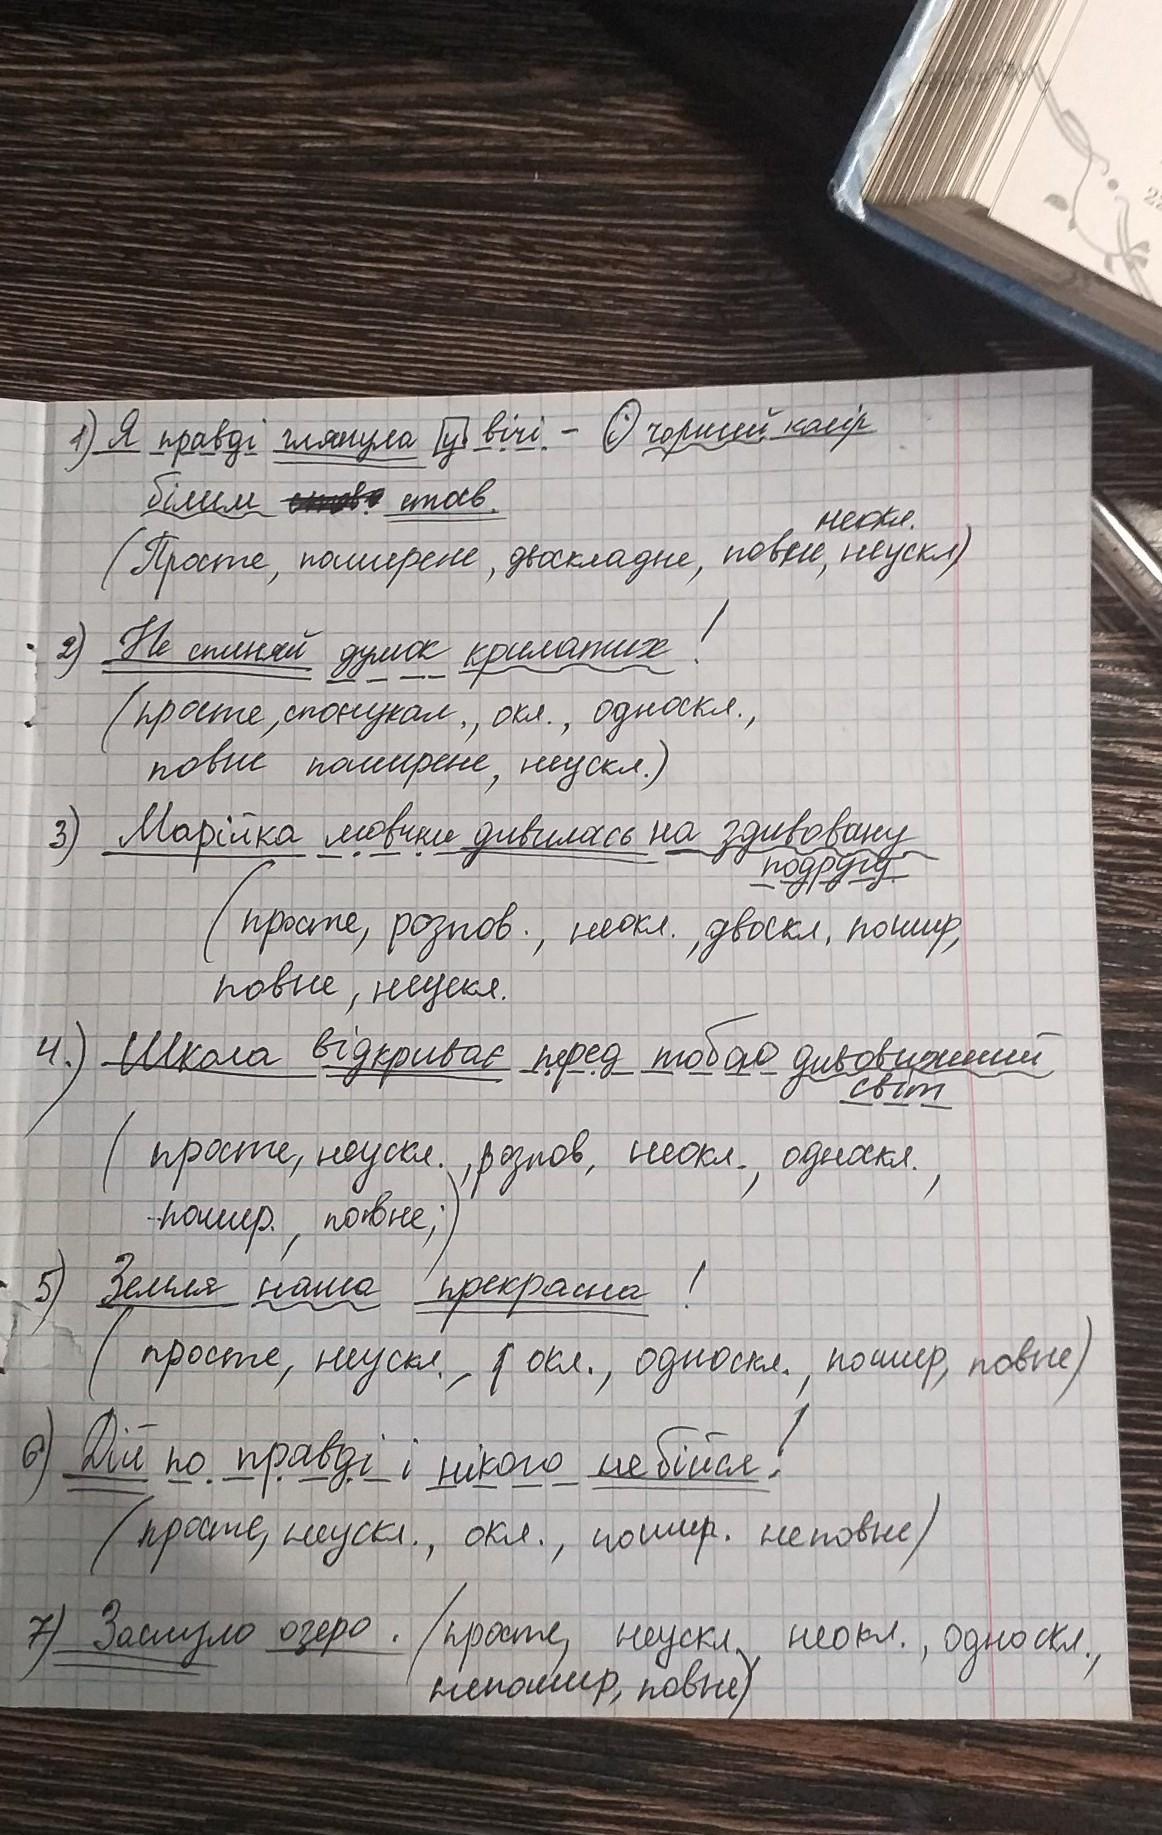 1) Я правді глянула у вічі – і чорний колір
білим став.
неокл.
(Просте, поширене, двоскладне, повне, неускл)
2) Не спиняй думок крилатих!
(просте, спонукал., окл., односкл.,
повне поширене, неускл.)
3) Марійка мовчки дивилась на здивовану
подругу.
(просте, розпов., неокл., двоскл, пошир,
повне, неускл.
4.) Школа відкриває перед тобою дивовижний
світ
(просте, неускл., розпов, неокл., односкл.,
пошир., повне;)
5) Земля наша прекрасна!
(просте, неускл., окл., односкл., пошир, повне)
6) Дій по правді і нікого не бійся!
(просте, неускл., окл., пошир. неповне)
7) Заснуло озеро. (просте, неускл, неокл., односкл.,
непошир, повне)
22